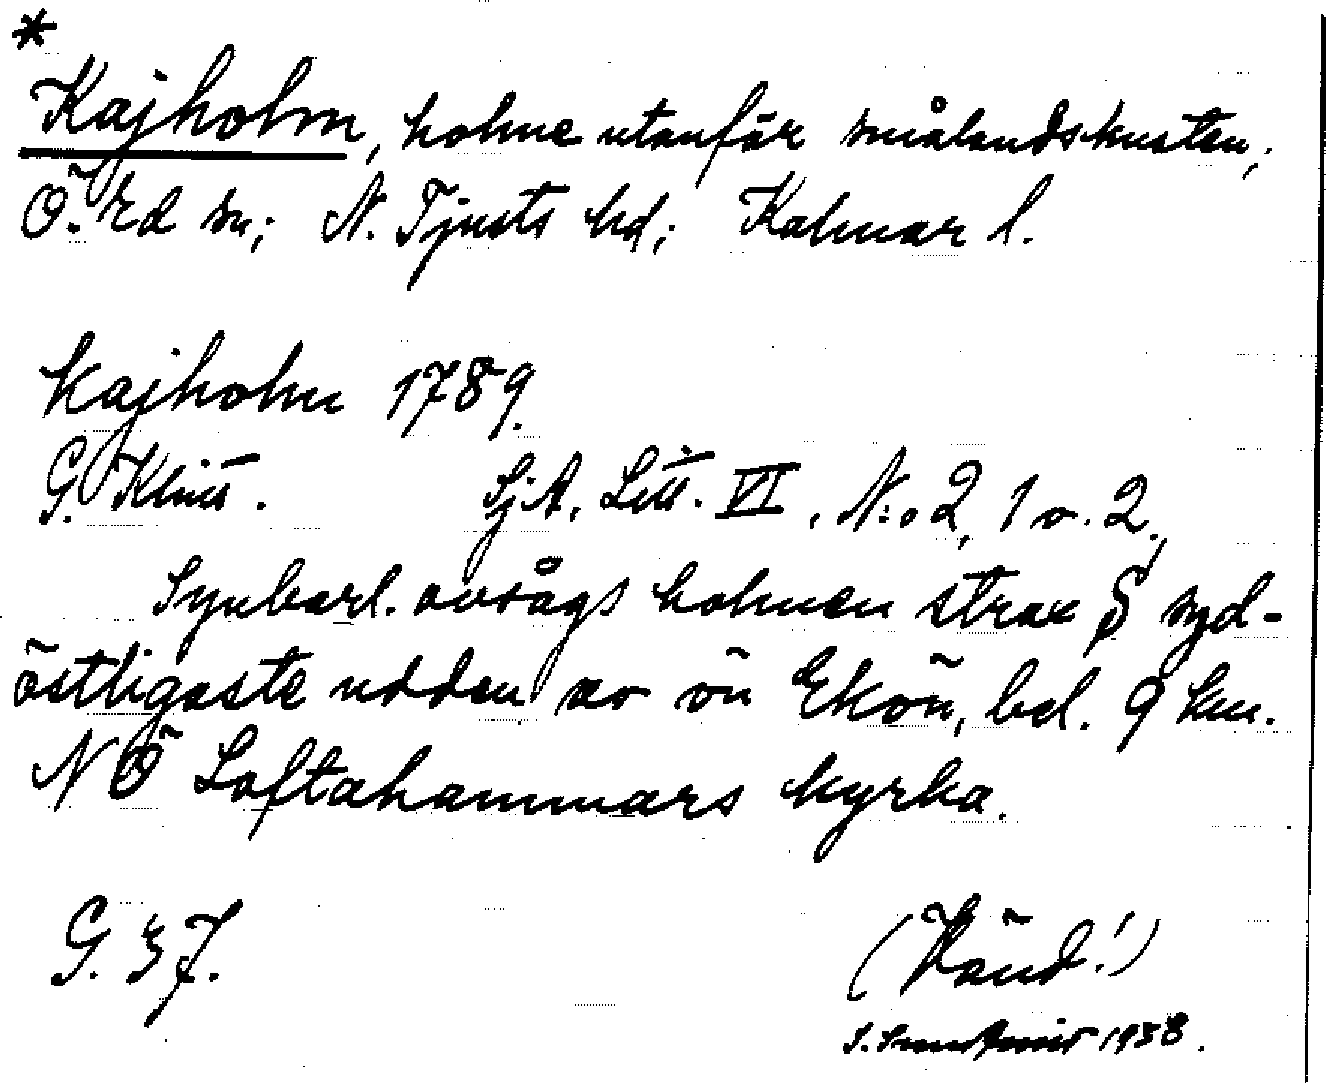 *
Kajholm, holme utanför smålandskusten,
Ö. Ed sn; N. Tjusts hd; Kalmar l.
Kajholm 1789.
G. Klint. Sj.A. Litt. VI, N:o 2, 1 o. 2.
Synbarl. avsågs holmen strax S syd-
östligaste udden av ön Ekön, bel. 9 km.
NÖ Loftahammars kyrka.
G. 37.
(Vänd!)
1938.